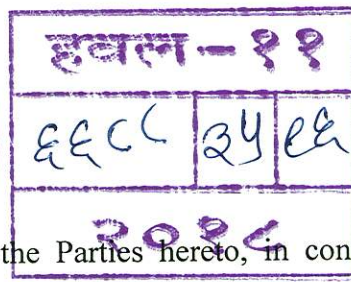 हवल - ११
६६८८ ३५ ९६
२०१८
the Parties hereto, in con